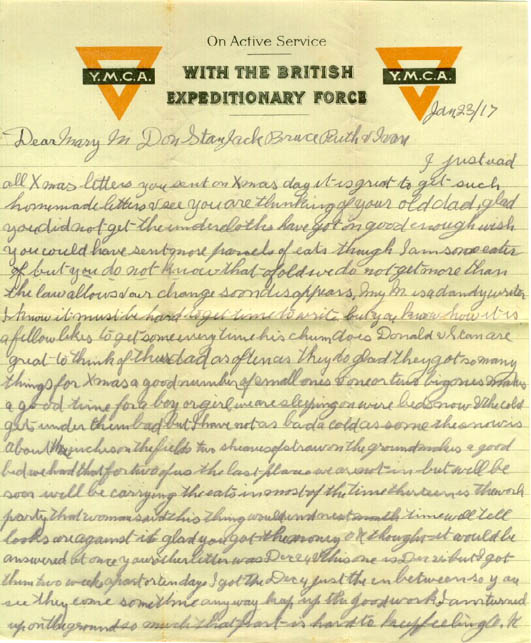 On Active Service
Y.M.C.A. WITH THE BRITISH Y.M.C.A.
EXPEDITIONARY FORCE
Jan 23/17
Dear Mary M Don Stan Jack Bruce Ruth & Ivan
I just read
all Xmas letters you sent on Xmas day it is great to get such
homemade letters & see you are thinking of your old dad, glad
you did not get the underclothes have got on good enough wish
you could have sent more parcels of eats though I am some eater
but you do not know that of old we do not get more than
the law allows & our change soon disappears, my M is a dandy writer
I know it must be hard to get time to write but you know how it is
a fellow likes to get some every time his chum does Donald & Stan are
great to think of their dad as often as they do glad they got so many
things for Xmas a good number of small ones & one or two big ones makes
a good time for a boy or girl we are sleeping on wire beds now & the cold
gets under them bad but I have not as bad a cold as some the snow is
about inches on the fields two sheaves of straw on the ground makes a good
bed we had that for two of us the last place we are not in but will be
soon will be carrying the eats in most of the time this seems the work
party that woman said this thing would end next month time will tell
looks are against it glad you got the money OK thought it would be
answered at once your other letter was Dec & this one is Dec but I got
them two weeks apart or ten days I got the Dec just the in between so you
see they come sometime anyway keep up the good work I am turned
up on the ground so much that part is hard to keep feeling O.K